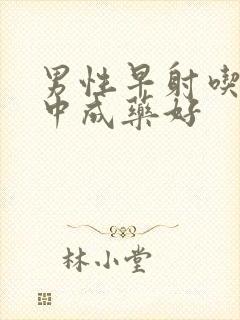 男性早射喫
中成藥好
林小堂